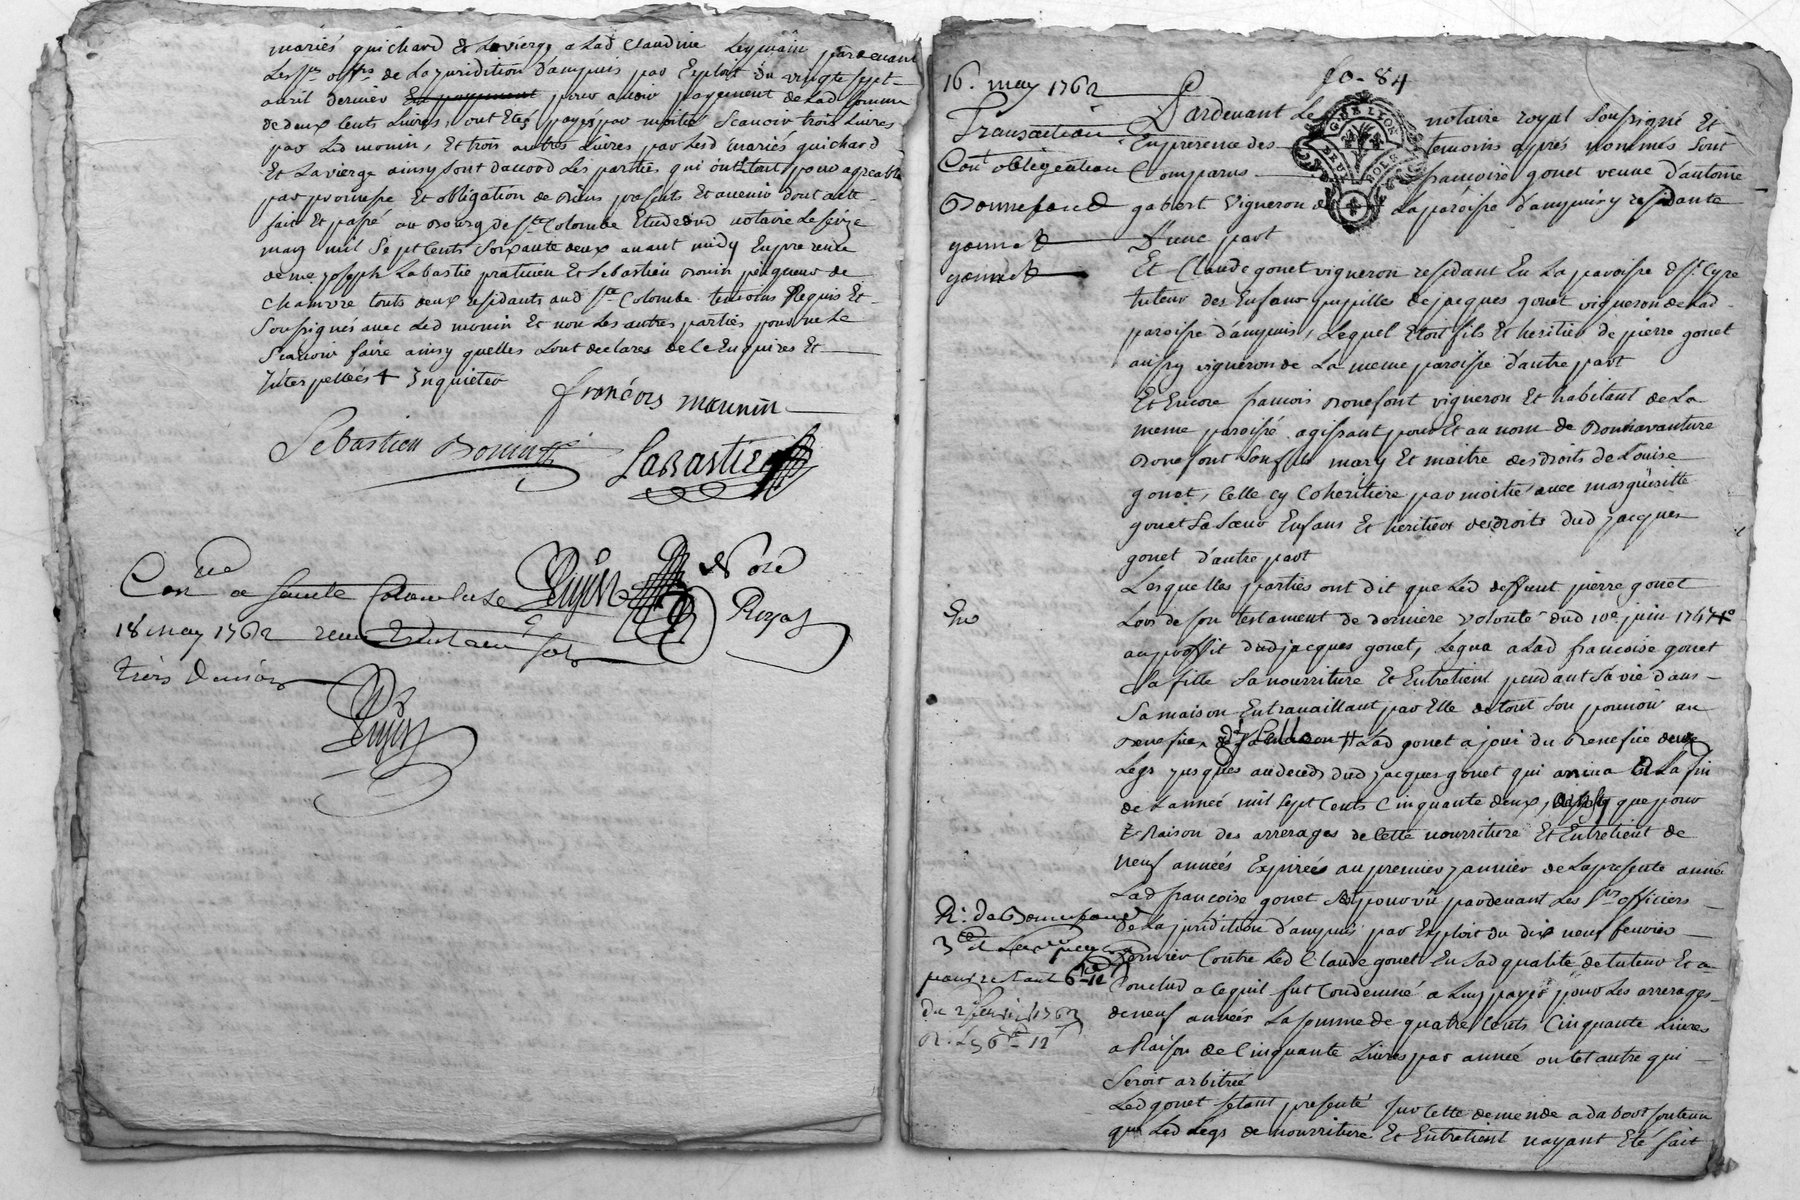 mariés guichard & Lavierge a Lad Claudine Leymain pardevant
Les Srs offrs de La juridition d'ampuis par Exploit du vingt sept
avril dernier En payement pour avoir payement de Lad somme
de deux Cents Livres, ont Etés payés par moitié Scavoir trois Livres
par Led monin, Et trois autres Livres par Lesd mariés guichard
Et Lavierge ainsy sont dacord Les parties qui ont le tout pour agreable
par promesse Et obligation de Biens presents Et avenir dont acte
fait Et passé au Bourg de Ste Colombe Etude dud notaire Le seize
may mil Sept Cents Soixante deux avant midy En presence
de me joseph Labastie praticien Et Sebastien Bonin peigneur de
Chanvre touts deux residants aud Ste Colombe temoins Requis Et
Soussignés avec Led monin Et non Les autres parties pour ne Le
Scavoir faire ainsy quelles L'ont declaré de Ce Enquises Et
Interpellées + Inquieter
françois mounin
Sebastien Bonin
LaBastie
Conlle a Sainte Colombe Le
18 may 1762 reçu
trois deniers
Nore
Royal
16. may 1762
fo. 84
Transaction
Con obligation
Bonnefond
gonnet
gonnet
GN DE LYON
DEUX SOLS
Pardevant Le notaire royal Soussigné Et
En presence des temoins aprés nommés sont
Comparus francoise gonet veuve d'antoine
gabert Vigneron de La paroisse d'ampuis y residante
D'une part
Et Claude gonet vigneron residant En La paroisse de St Cyre
tuteur des Enfans pupilles de jacques gonet vigneron de Lad
paroisse d'ampuis, Lequel Etoit fils Et heritier de pierre gonet
aussy vigneron de La meme paroisse d'autre part
Et Encore francois Bonefont vigneron Et habitant de La
meme paroisse agissant pour Et au nom de Bonnavanture
Bonefont son fils mary Et maitre des droits de Louise
gonet, Celle cy Coheritiere par moitié avec margueritte
gonet Sa Soeur Enfans Et heritiers des droits dud jacques
gonet d'autre part
Lesquelles parties ont dit que Led deffunt pierre gonet
Lors de son testament de derniere volonté dud 10e juin 1747
au proffit dud jacques gonet, Legua a Lad francoise gonet
Sa fille Sa nourriture Et Entretient pendant Sa vie dans
Sa maison En travaillant par Elle de tout Son pouvoir au
Benefice Lad gonet a joui du Benefice de ce
Legs jusques au deceds dud jacques gonet qui arriva a La fin
de L'année mil sept Cents Cinquante deux, que pour
Raison des arrerages de Cette nourriture Et Entretient de
neuf années Expirées au premier janvier de La presente année
Lad francoise gonet Se pourvû pardevant Les Srs officiers
de La juridition d'ampuis par Exploit du dix neuf fevrier
dernier Contre Led Claude gonet En Sad qualité de tuteur Et a
Conclud a Ce quil fut Condemné a Luy payer pour Les arrerages
de neuf années La somme de quatre Cents Cinquante Livres
a Raison de Cinquante Livres par année ou tel autre qui
Seroit arbitrée
Led gonet s'etant presenté sur Cette demende a dabort soutenu
que Led Legs de nourriture Et Entretient n'ayant Eté fait
En
R. de Bonnefond
pour restant